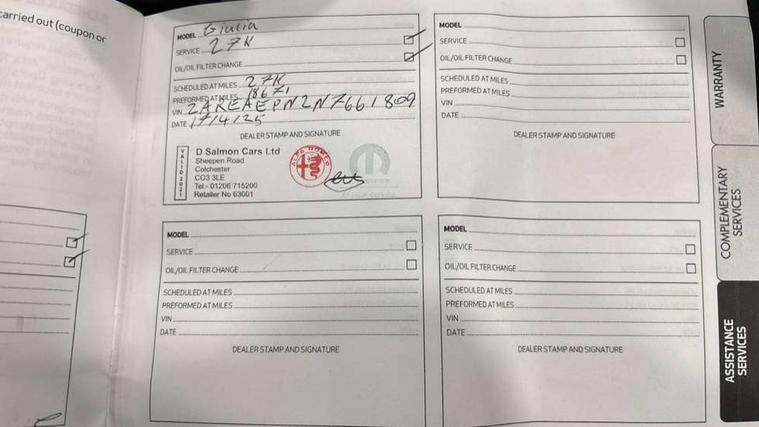 carried out (coupon or
MODEL Giulia
SERVICE 27K
OIL/OIL FILTER CHANGE
SCHEDULED AT MILES 27K
PREFORMED AT MILES 18671
VIN ZAREAEPN2N7661809
DATE 17/4/25
DEALER STAMP AND SIGNATURE
VALID 2021
D Salmon Cars Ltd
Sheepen Road
Colchester
CO3 3LE
Tel:- 01206 715200
Retailer No 63001
ALFA ROMEO
MODEL
SERVICE
OIL/OIL FILTER CHANGE
SCHEDULED AT MILES
PREFORMED AT MILES
VIN
DATE
DEALER STAMP AND SIGNATURE
MODEL
SERVICE
OIL/OIL FILTER CHANGE
SCHEDULED AT MILES
PREFORMED AT MILES
VIN
DATE
DEALER STAMP AND SIGNATURE
MODEL
SERVICE
OIL/OIL FILTER CHANGE
SCHEDULED AT MILES
PREFORMED AT MILES
VIN
DATE
DEALER STAMP AND SIGNATURE
WARRANTY
COMPLEMENTARY
SERVICES
ASSISTANCE
SERVICES